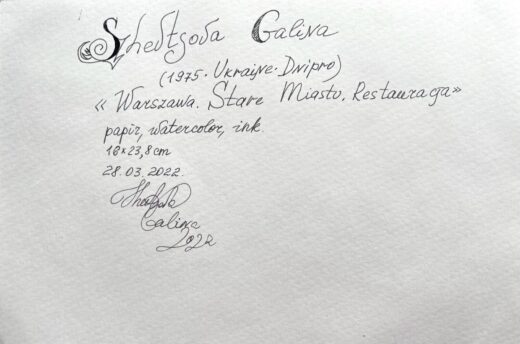 Shevtsova Galina
(1975. Ukraine. Dnipro)
« Warszawa. Stare Miasto. Restauraga»
papir, watercolor, ink.
18×23,8cm
28.03.2022.
Galina
2022